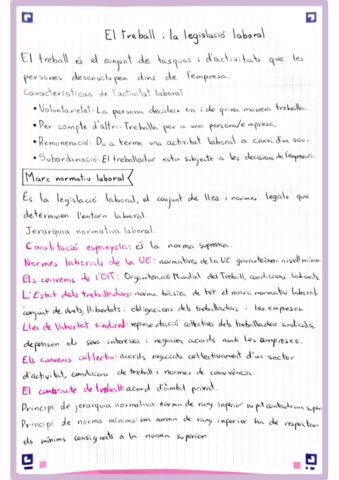 El treball i la legislació laboral
El treball és el conjunt de tasques i d'activitats que les
persones desenvolupen dins de l'empresa.
Característiques de l'activitat laboral
• Voluntarietat: La persona decideix on i de quina manera treballa.
• Per compte d'altri: Treballa per a una persona/empresa.
• Remuneració: Du a terme una activitat laboral a canvi d'un sou.
• Subordinació: El treballador esta subjecte a les decisions de l'empresari.
Marc normatiu laboral
És la legislació laboral, el conjunt de lleis i normes legals que
determinen l'entorn laboral.
Jerarquia normativa laboral.
Constitució espanyola: és la norma suprema.
Normes laborals de la UE: normatives de la UE garanteixen nivell mínim
Els convenis de l'OIT: Organització Mundial del Treball, condicions laborals
L'Estat dels treballadors: norma bàsica de tot el marc normatiu laboral
conjunt de drets, llibertats i obligacions dels treballadors i les empreses
Llei de llibertat sindical: representació col·lectiva dels treballadors sindicats,
depenen els seus interessos i negocien acords amb les empreses.
Els convenis col·lectius: acords negociats col·lectivament d'un sector
d'activitat, condicions de treball i normes de convivència.
El contracte de treball: acord d'àmbit privat.
Principi de jerarquia normativa: norma de rang inferior no pot contradir norma superior
Principi de norma mínima: norma de rang inferior ha de respectar
els mínims consignats a la norma superior